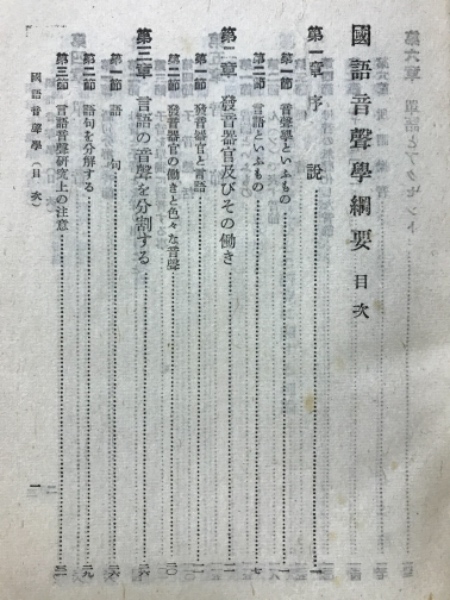 國語音聲學綱要 目次
第一章 序說 一
第一節 音聲學といふもの 一
第二節 言語といふもの 七
第二章 發音器官及びその働き 一一
第一節 發音器官と言語 一一
第二節 發音器官の働きと色々な音聲 二〇
第三章 言語の音聲を分割する 二六
第一節 語句 二六
第二節 語句を分解する 二九
第三節 言語音聲研究上の注意
國語音聲學（目次） 一